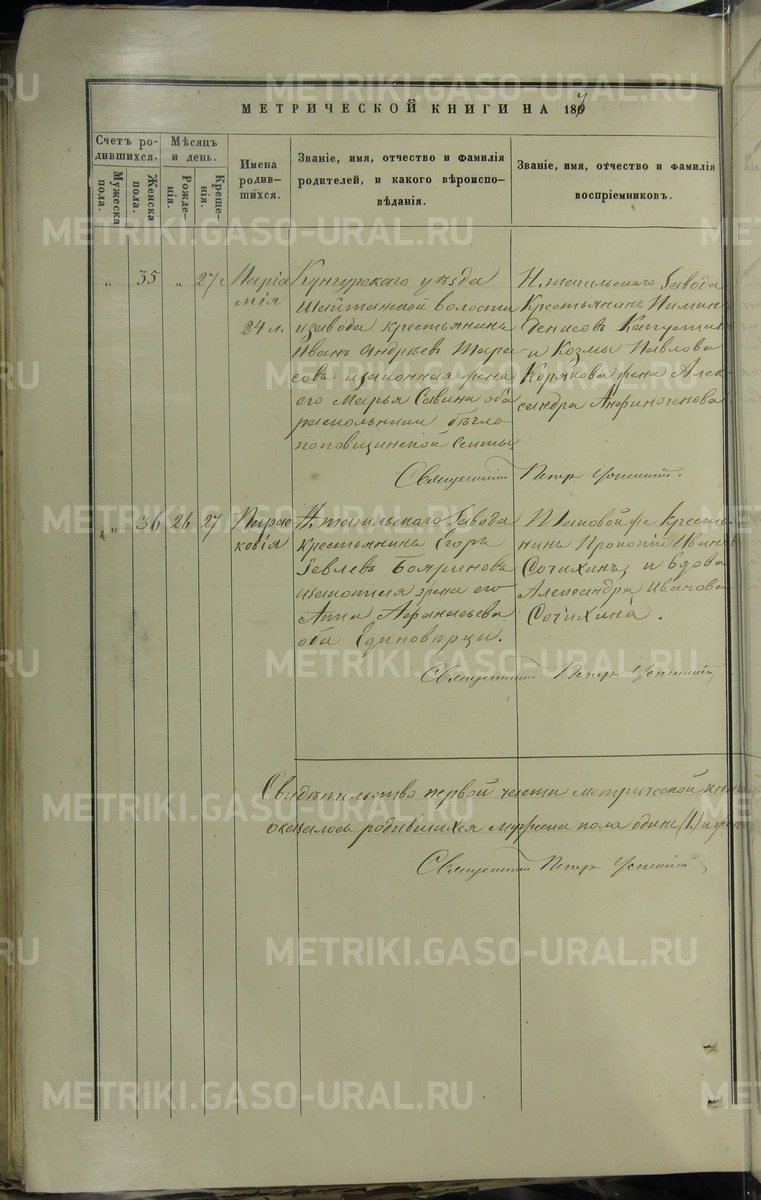 МЕТРИЧЕСКОЙ КНИГИ НА 1867
Счетъ ро-
дившихся.
Мужеска
пола.
Женска
пола.
Мѣсяцъ
и день.
Рожде-
нія.
Креще-
нія.
Имена
родив-
шихся.
Званіе, имя, отчество и фамилія
родителей, и какого вѣроиспо-
вѣданія.
Званіе, имя, отчество и фамилія
воспріемниковъ.
" 35 " 27
24 л.
Кунгурскаго уѣзда
Шайтанской волости
и завода крестьянина
Иванъ Андрѣевъ Тара
совъ и законная жена
его Марья Савина оба
раскольники бѣгло
поповщинской секты
Н. тагильскаго Завода
Крестьянинъ Пимин
Денисовъ
и Козмы Павлова
Корякова жена Алек
сандра Анфиногенова
Священникъ Петр
" 36 26 27
Парас
ковія
Н. тагильскаго Завода
Крестьянинъ Егоръ
Іевлевъ Бояриновъ
и законная жена его
Анна Афанасьева
оба Единовѣрцы.
Таковой же Кресть
нинъ Прокопій Иванов
Сочихинъ, и вдова
Александра Иванова
Сочихина.
Священникъ Петр
Свидѣтельство первой части метрической книг
оказалось родившихся мужеска пола одинъ (1) и
Священникъ Петр
METRIKI.GASO-URAL.RU